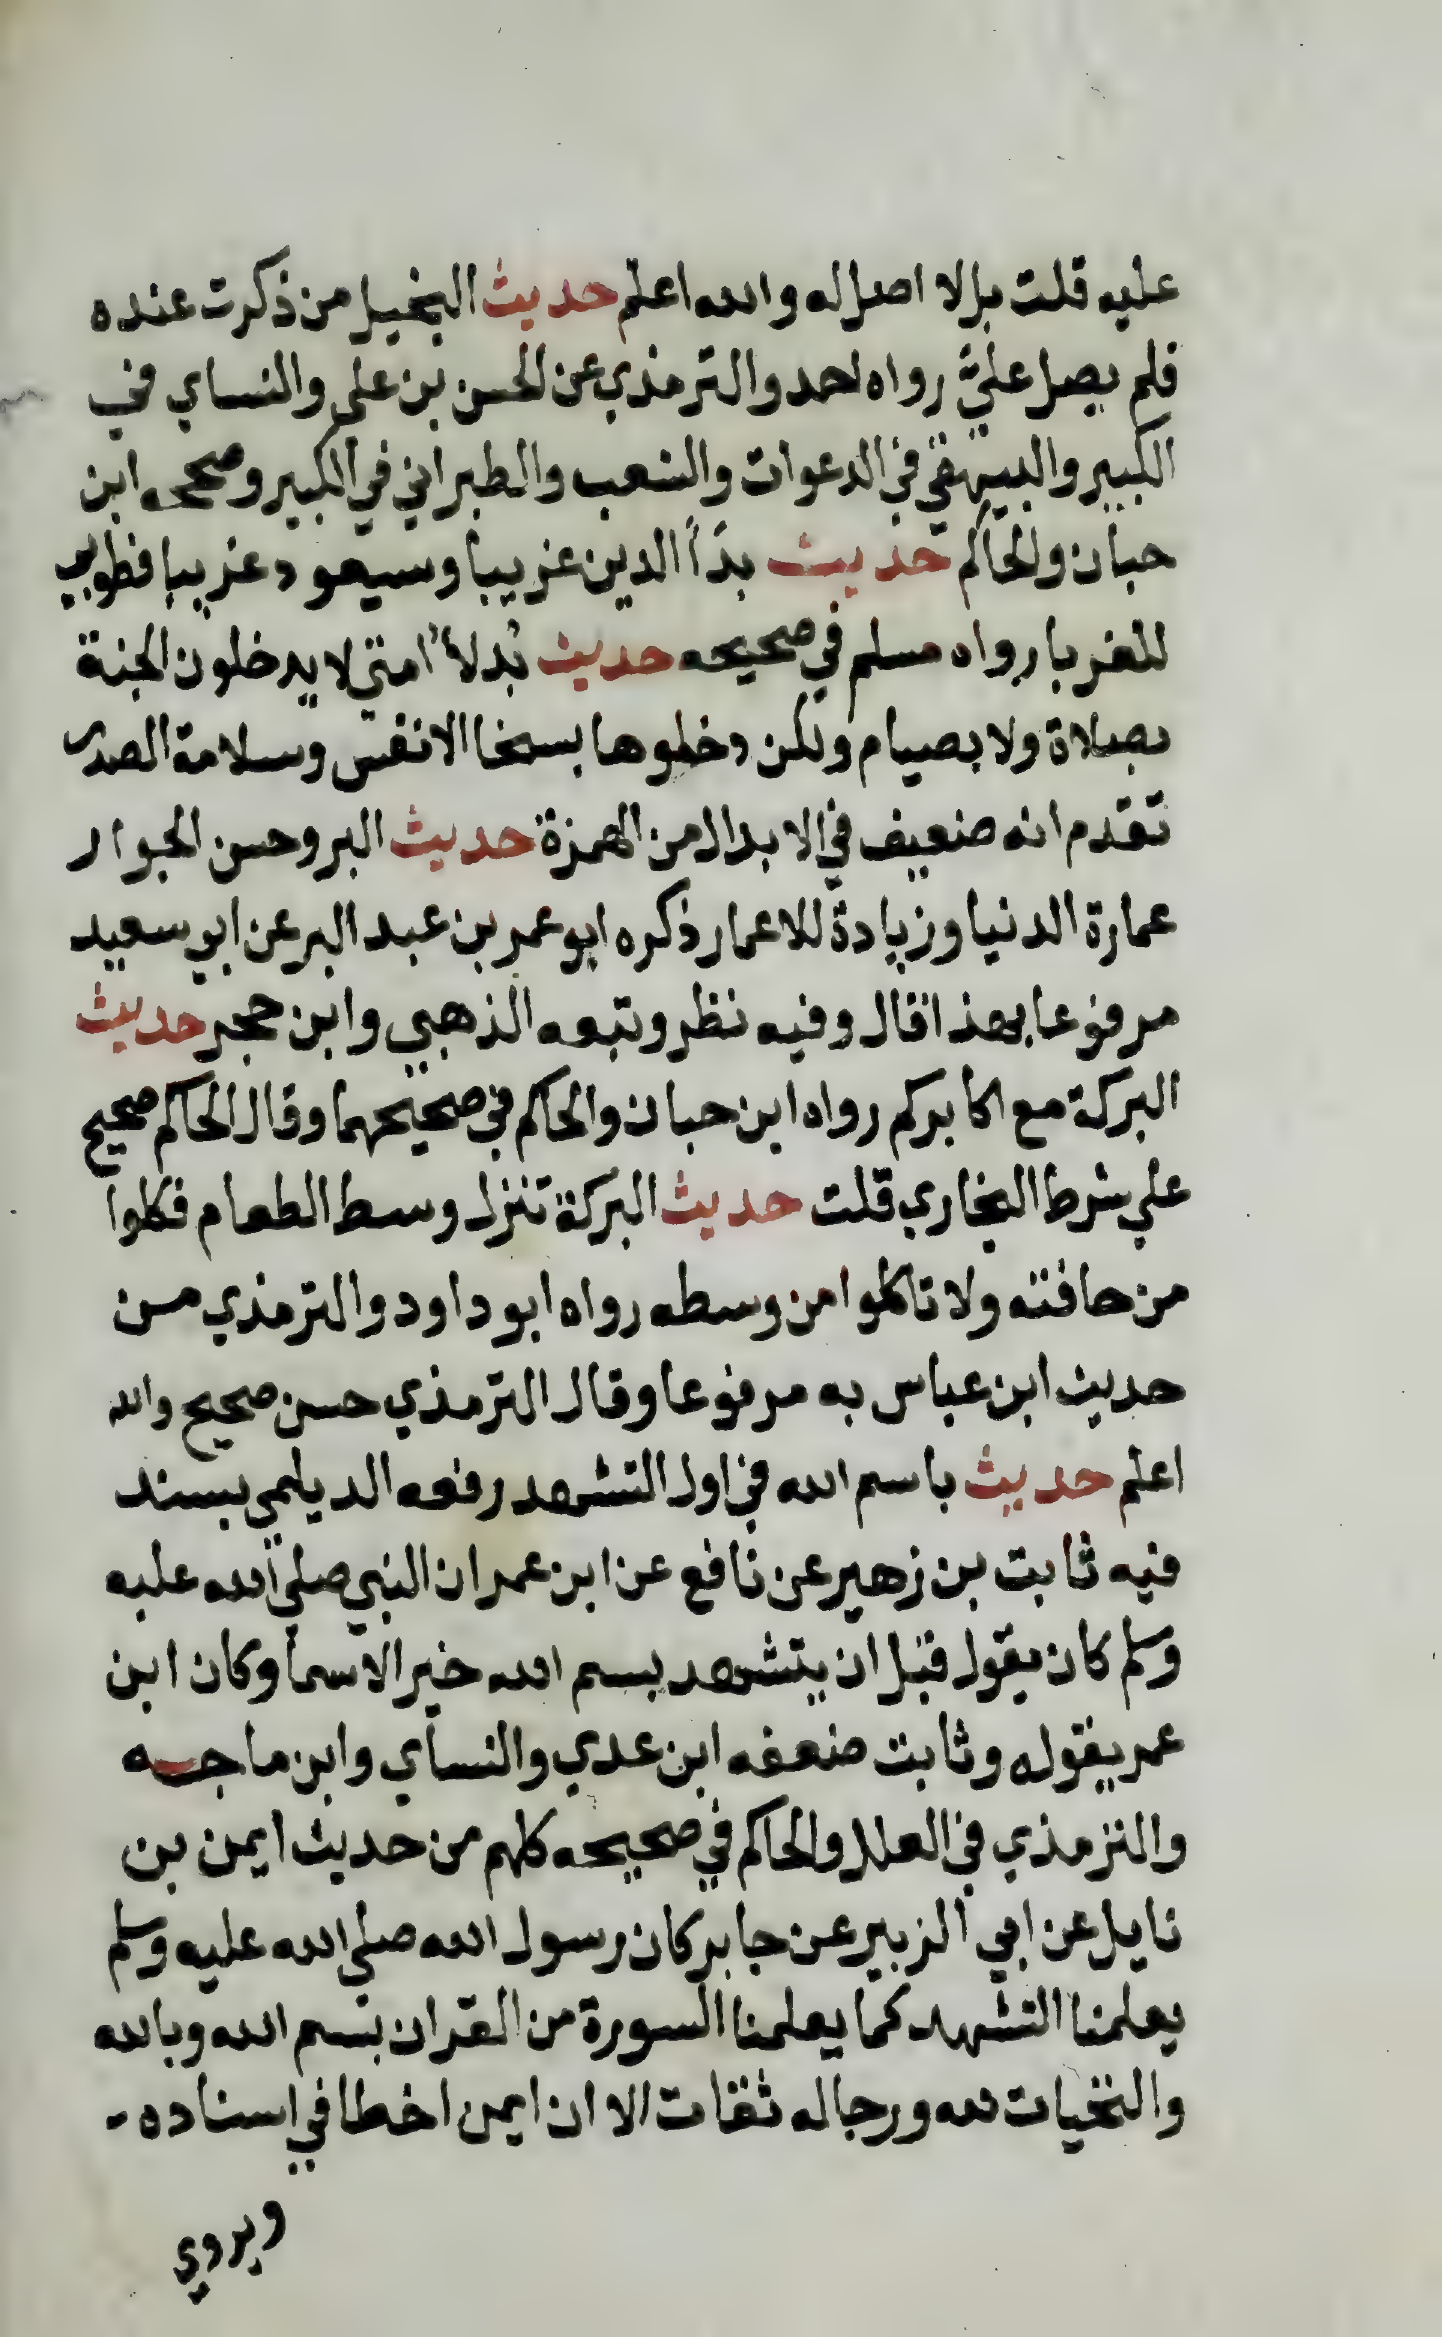 عليه قلت بل لا اصل له والله اعلم حديث البخيل من ذكرت عنده
فلم يصل عليَّ رواه احمد والترمذي عن الحسن بن علي والنساي في
الكبير والبيهقي في الدعوات والشعب والطبراني في الكبير وصححه ابن
حبان والحاكم حديث بدَأ الدين غريبا وسيعود غريبا فطوبي
للغربا رواه مسلم في صحيحه حديث بُدلاُ امتي لا يدخلون الجنة
بصلاة ولا بصيام ولكن دخلوها بسخا الانفس وسلامة الصدر
تقدم انه ضعيف في الابدال من الهمزة حديث البر وحسن الجوار
عمارة الدنيا وزيادة للاعمار ذكره ابو عمر بن عبد البر عن ابي سعيد
مرفوعا بهذا قال وفيه نظر وتبعه الذهبي وابن حجر حديث
البركة مع اكابركم رواه ابن حبان والحاكم في صحيحهما وقال الحاكم صحيح
علي شرط البخاري قلت حديث البركة تنزل وسط الطعام فكلوا
من حافته ولا تاكلوا من وسطه رواه ابو داود والترمذي من
حديث ابن عباس به مرفوعا وقال الترمذي حسن صحيح والله
اعلم حديث باسم الله في اول التشهد رفعه الديلمي بسند
فيه ثابت بن زهير عن نافع عن ابن عمر ان النبي صلي الله عليه
وسلم كان يقول قبل ان يتشهد بسم الله خير الاسما وكان ابن
عمر يقوله وثابت ضعفه ابن عدي والنساي وابن ماجه
والترمذي في العلل والحاكم في صحيحه كلهم من حديث ايمن بن
نايل عن ابي الزبير عن جابر كان رسول الله صلي الله عليه وسلم
يعلمنا التشهد كما يعلمنا السورة من القران بسم الله وبالله
والتحيات لله ورجاله ثقات الا ان ايمن اخطا في اسناده
ويروي